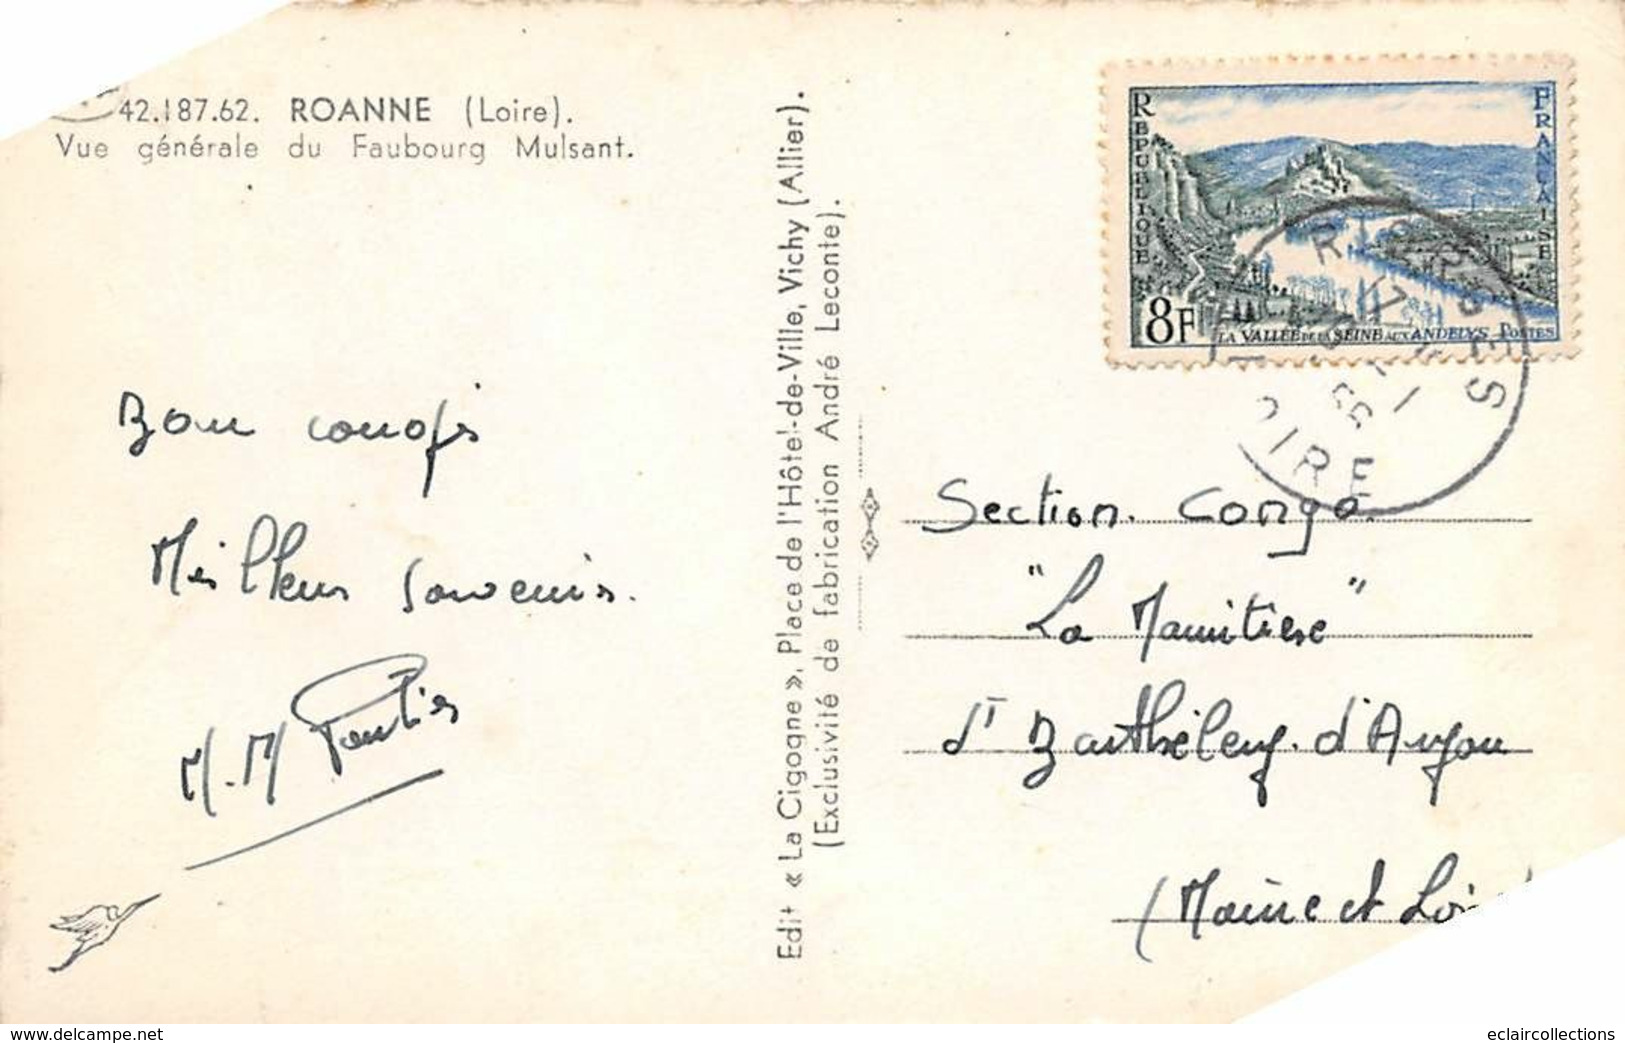 42.187.62. ROANNE (Loire).
Vue générale du Faubourg Mulsant.
Meilleurs souvenirs.
Edit « La Cigogne », Place de l'Hôtel-de-Ville, Vichy (Allier).
(Exclusivité de fabrication André Leconte).
REPUBLIQUE
FRANÇAISE
8F
LA VALLÉE DE LA SEINE AUX ANDELYS POSTES
RIORGES
17
LOIRE
Section. Congo.
"La
St Barthélemy. d'Anjou
(Maine et Loire
www.delcampe.net
eclaircollections